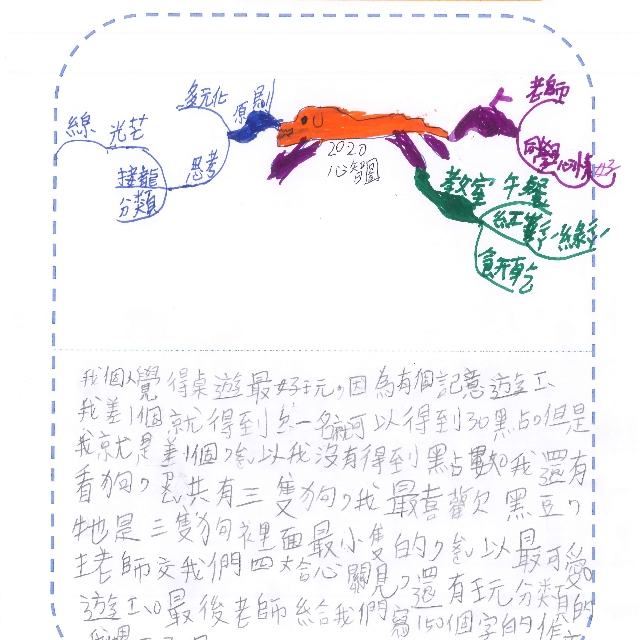 多元化
原則
綠 光芒
思考
接龍
分類
2020
心智圖
老師
同學 好
教室 午餐
紅 綠
餅乾
我個人覺得桌遊最好玩,因為有個記憶遊工
我差1個就得到第一名就可以得到30點。但是
我就是差1個,所以我沒有得到點數。我還有
看狗,總共有三隻狗,我最喜歡黑豆,
牠是三隻狗裡面最小隻的,所以最可愛。
老師交我們四大心關見,還有玩分類的
遊工。最後老師給我們寫150個字的作